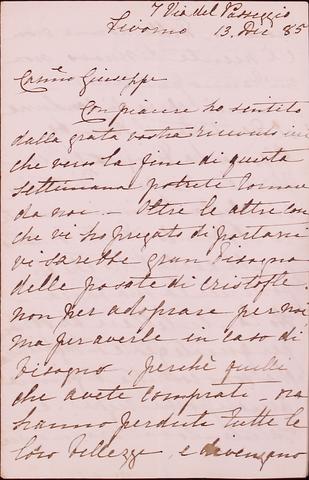 7 Via del Passeggio
Livorno 13. Dic 85
Carmo Giuseppe
Con piacere ho sentito
dalla grata vostra ricevuta
che verso la fine di questa
settimana potrete tornare
da noi. — Oltre le altre cose
che vi ho pregato di portarmi
vi sarebbe gran bisogno
delle posate di cristofle.
non per adoprare per noi
ma per averle in caso di
bisogno, perchè quelle
che avete comprate - ora
hanno perduta tutte le
loro bellezze, e divengono